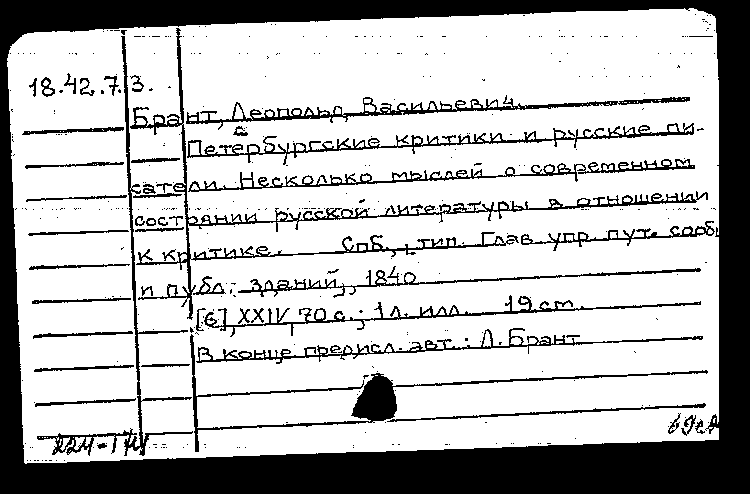 18.42.7.3.
Брант, Леопольд Васильевич.
Петербургские критики и русские пи-
сатели. Несколько мыслей о современном
состоянии русской литературы в отношении
к критике. Спб., тип. Глав. упр. пут. сообщ
и публ. зданий, 1840
[6], XXIV, 70 с.; 1 л. илл. 19 см.
В конце предисл. авт.: Л. Брант